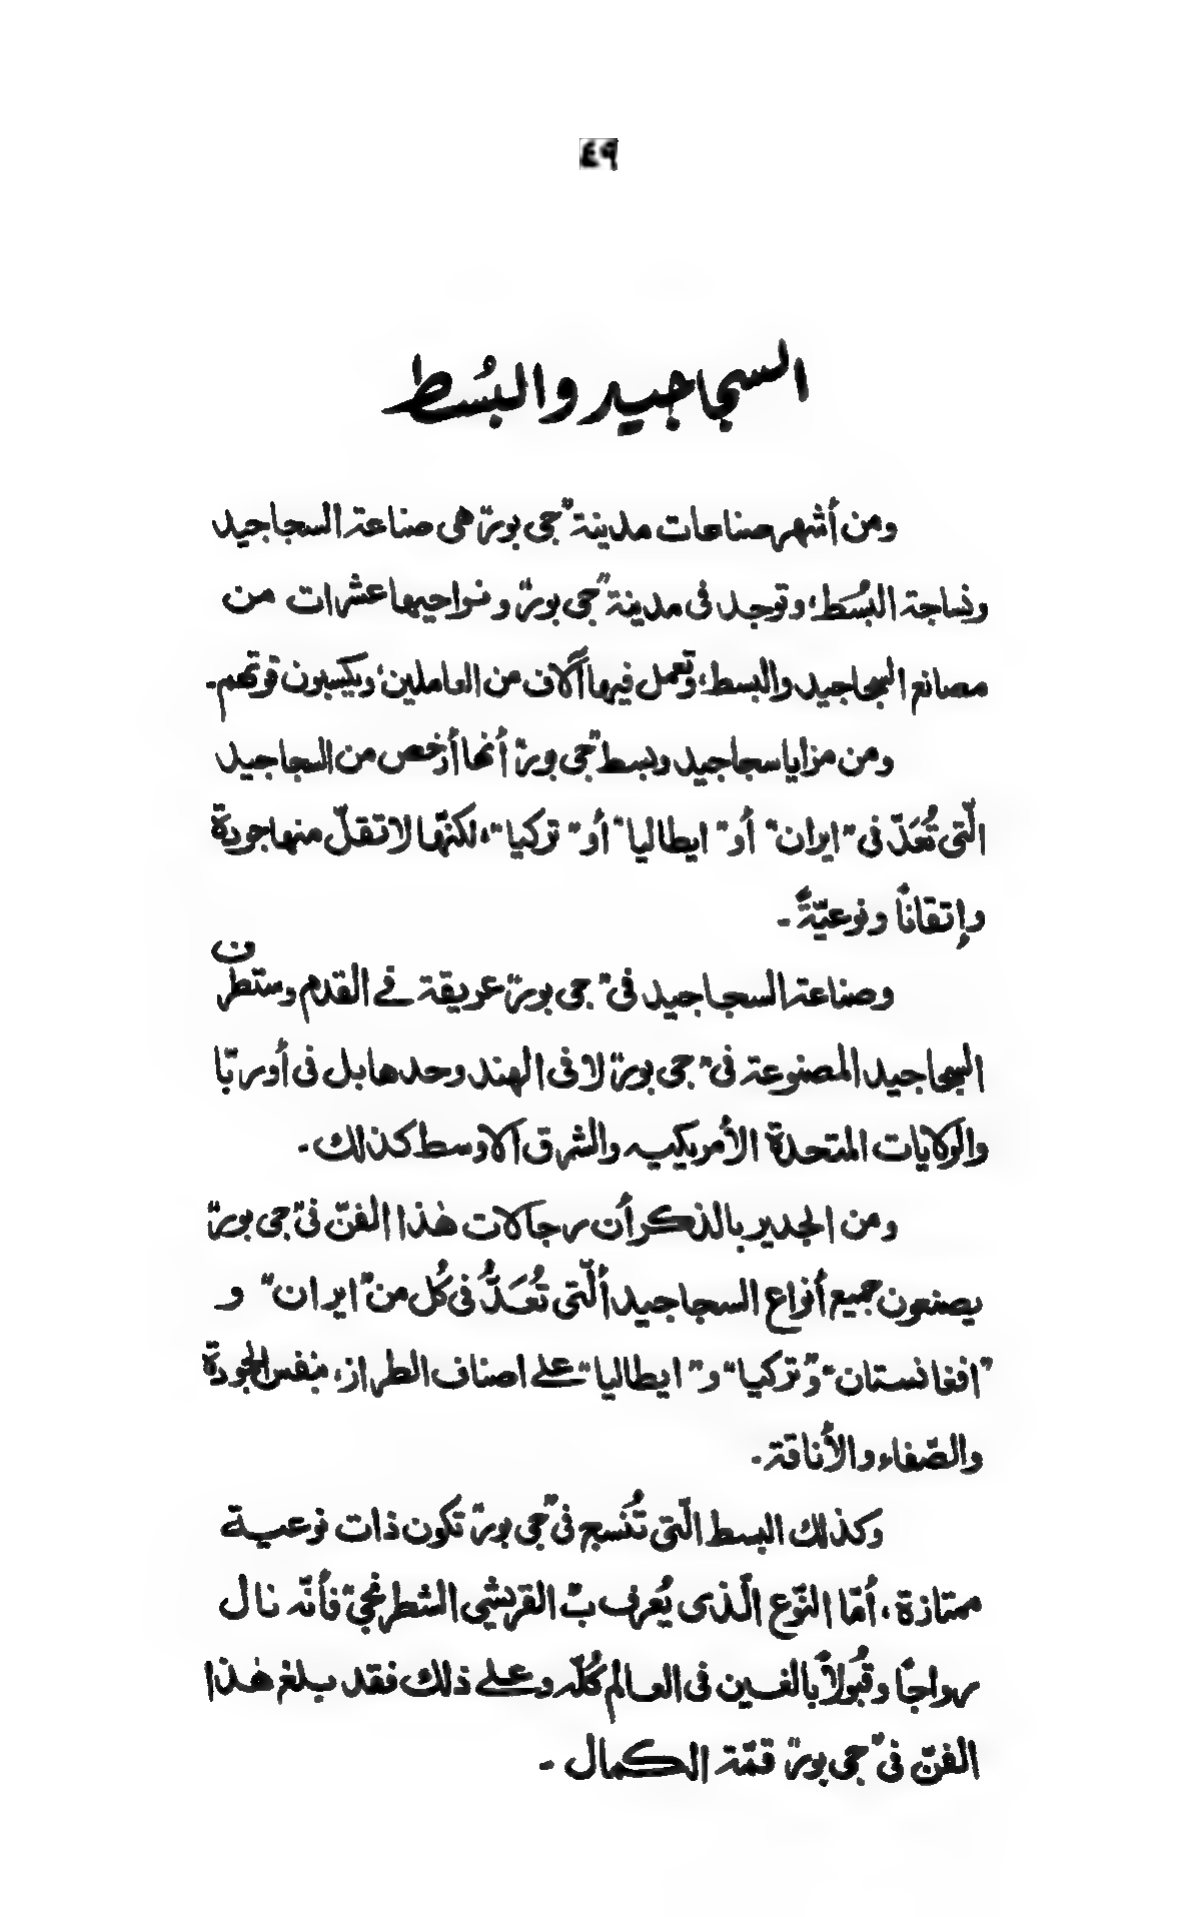 ٤٩
السجاجيد والبُسط
ومن أشهر صناعات مدينة "جی بور" هی صناعة السجاجيد
ونساجة البُسَط، وتوجد فی مدينة "جی بور" و نواحيها عشرات من
مصانع السجاجيد والبسط، وتعمل فيها آلاف من العاملين، ويكسبون قوتهم۔
ومن مزايا سجاجيد وبسط "جی بور" أنها أرخص من السجاجيد
الّتی تُعَدّ فی "ايران" أو "ايطاليا" أو "تركيا"، لكنّها لا تقلّ منها جودة
وإتقانًا ونوعيّةً۔
وصناعة السجاجيد فی "جی بور" عريقة فے القدم وستطرن
السجاجيد المصنوعة فی "جی بور" لا فی الهند وحدها بل فی أوربّا
والولايات المتحدة الأمريكيه والشرق الاوسط كذلك۔
ومن الجدير بالذكر أن رجالات هٰذا الفنّ فی "جی بور"
يصنعون جميع أنواع السجاجيد ألّتی تُعَدُّ فی كُل من "ايران" و
"افغانستان" و "تركيا" و "ايطاليا" علے اصناف الطراز، بنفس الجودة
والصّفاء والأناقة۔
وكذلك البسط الّتی تُنسج فی "جی بور" تكون ذات نوعية
ممتازة، أمّا النّوع الّذی يُعرف بـ "القريشی الشطرنجی" فأنّه نال
رواجًا وقُبولاً بالغين فی العالم كُلّه وعلے ذلك فقد بلغ هٰذا
الفنّ فی "جی بور" قمّة الكمال ۔